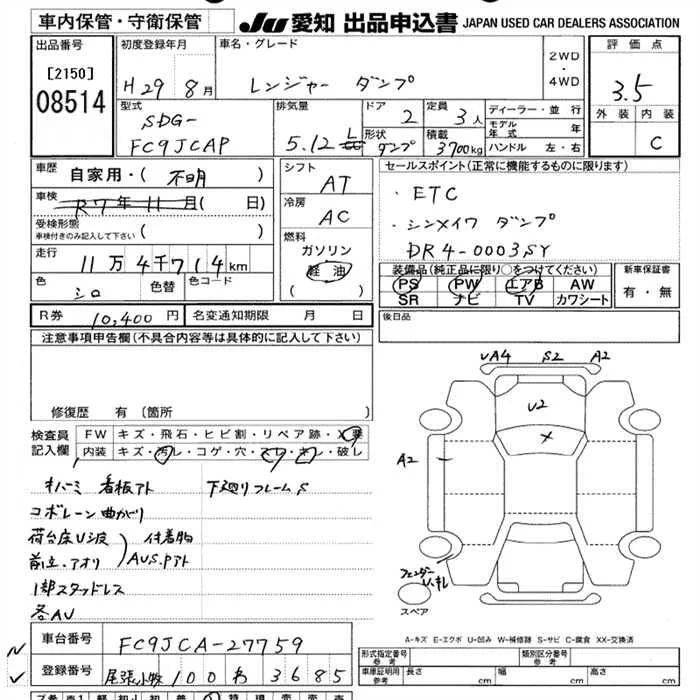 車内保管・守衛保管
JU 愛知 出品申込書 JAPAN USED CAR DEALERS ASSOCIATION
出品番号
[2150]
08514
初度登録年月
H29 8月
車名・グレード
レンジャー ダンプ
2WD
・
4WD
評価点
3.5
外装 内装
C
型式
SDG-
FC9JCAP
排気量
5.12 L
ドア
2
定員
3人
形状
ダンプ
積載
3700kg
ディーラー・並行
モデル
年式 年
ハンドル 左・右
車歴
自家用・( 不明 )
車検
R7年11月( 日)
受検形態
車検付きのみ記入して下さい ( )
走行
11万4千714km
色
シロ
色替
色コード
シフト
AT
冷房
AC
燃料
ガソリン
軽油
( )
セールスポイント(正常に機能するものに限ります)
・ETC
・シンメイワ ダンプ
DR4-0003SY
装備品(純正品に限り○をつけてください)
PS PW エアB AW
SR ナビ TV カワシート
新車保証書
有・無
R券 10,400円
名変通知期限 月 日
後日品
注意事項申告欄(不具合内容等は具体的に記入して下さい)
修復歴 有(箇所 )
検査員
記入欄
FW キズ・飛石・ヒビ割・リペア跡・X要
内装 キズ・汚レ・コゲ・穴・スレ・キレ・破レ
オバーミ 看板アト 下廻りフレームS
コボレーン曲がり
荷台床U波
前立.アオリ
付着物
AUS.Pアト
1部スタッドレス
各AU
UA4 S2 A2
U2
X
A2
フェンダー
スペア
A-キズ E-エクボ U-凹み W-補修跡 S-サビ C-腐食 XX-交換済
車台番号 FC9JCA-27759
登録番号 尾張小牧 100 わ 3685
形式指定番号
参考
類別区分番号
参考
車庫証明用
参考
長さ cm
幅 cm
高さ cm